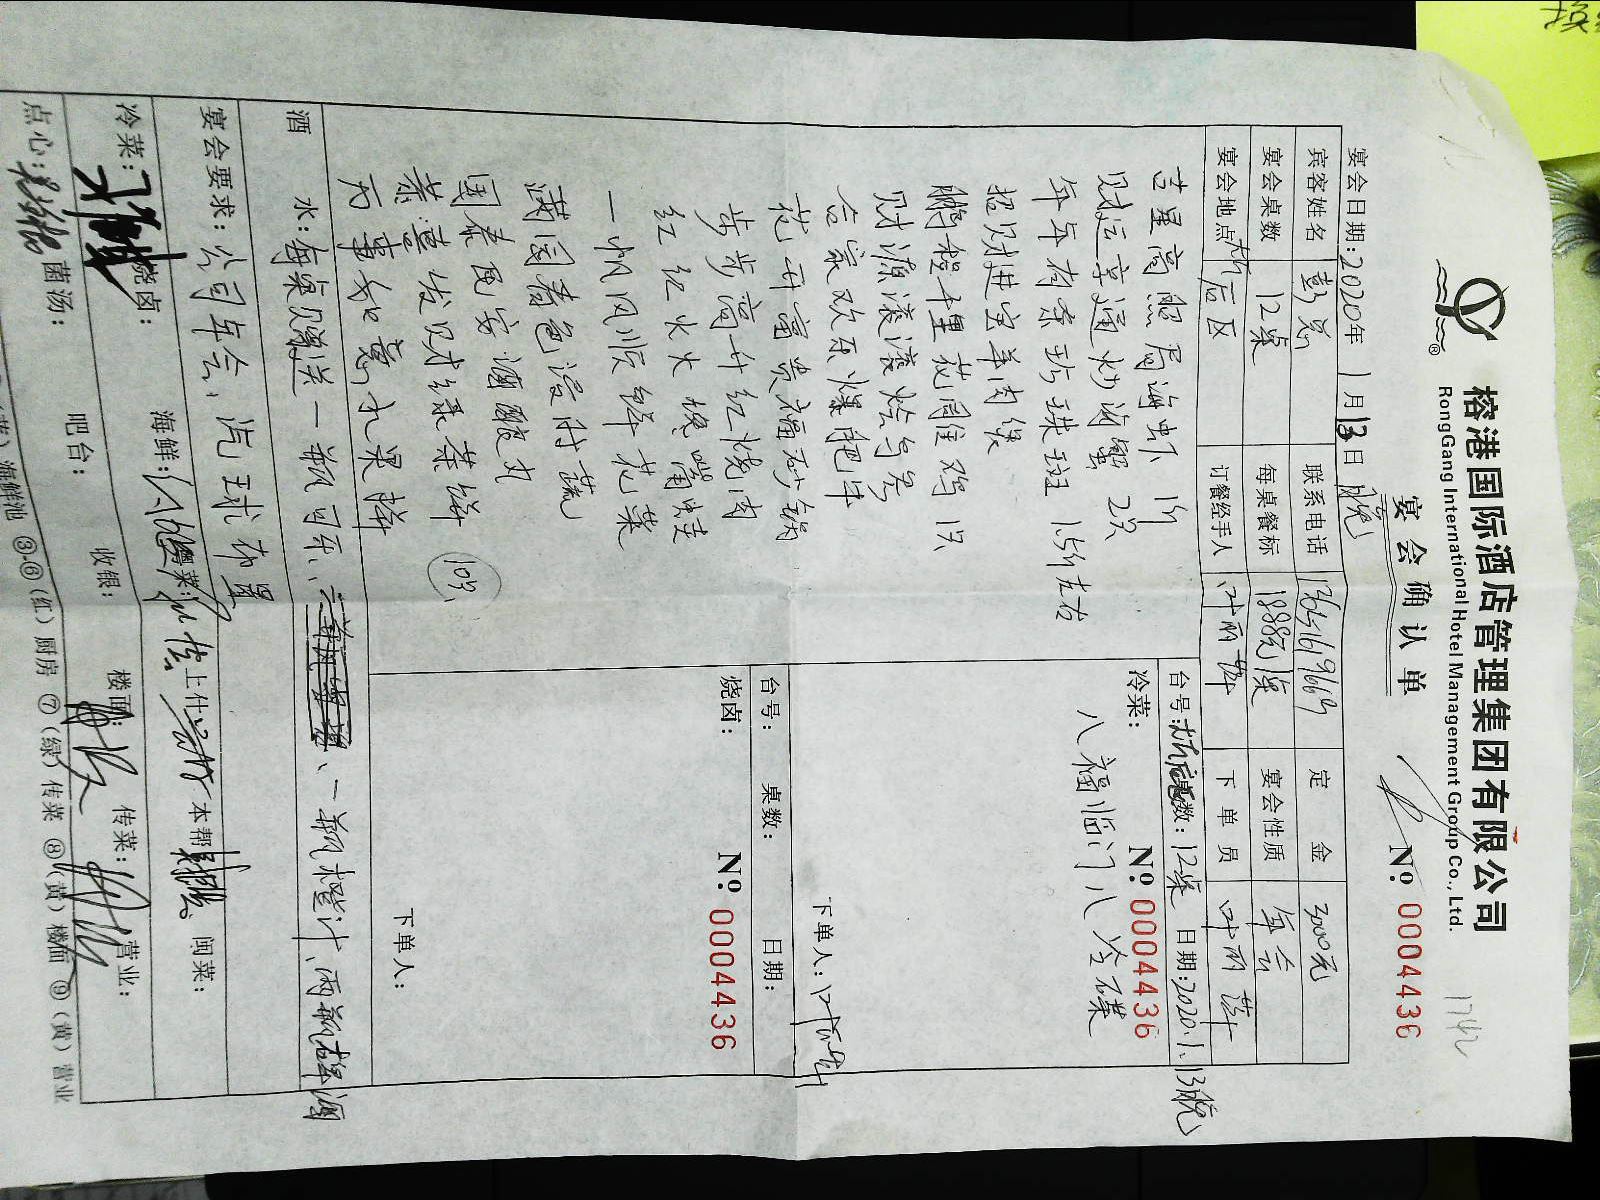 榕港国际酒店管理集团有限公司
RongGang International Hotel Management Group Co., Ltd.
宴会确认单 № 0004436
宴会日期：2020年 1月13日（晚）
宾客姓名 彭总 联系电话 定金 3000元
宴会桌数 12桌 每桌餐标 1888元/桌 宴会性质 年会
宴会地点 后区 订餐经手人 叶雨萍 下单员 叶雨萍
吉星高照局海虾 1斤
财运亨通炒海蟹 2只
年年有余珍珠斑 1.5斤左右
招财进宝羊肉煲
鹏程万里菽园住鸡 1只
财源滚滚烩乌参
合家欢乐爆肥牛
花开富贵福砂锅
步步高升红烧肉
红红火火
一帆风顺拌花菜
满园春色浸时蔬
国泰民安滷酸丸
恭喜发财绿茶饼
万事如意水果拼
10%
台号： 桌数：12桌 日期：2020.1.13（晚）
№ 0004436
冷菜：
八福临门八冷碟
下单人：叶雨萍
台号： 桌数： 日期：
№ 0004436
烧卤：
下单人：
酒水：每桌赠送一瓶可乐、一瓶橙汁、两瓶啤酒
宴会要求：公司年会，汽球布置
冷菜： 烧卤： 海鲜： 粤菜： 上什： 本帮： 闽菜：
点心： 菌汤： 吧台： 收银： 楼面： 传菜： 营业：
海鲜池 ③-⑥（红）厨房 ⑦（绿）传菜 ⑧（黄）楼面 ⑨（黄）营业